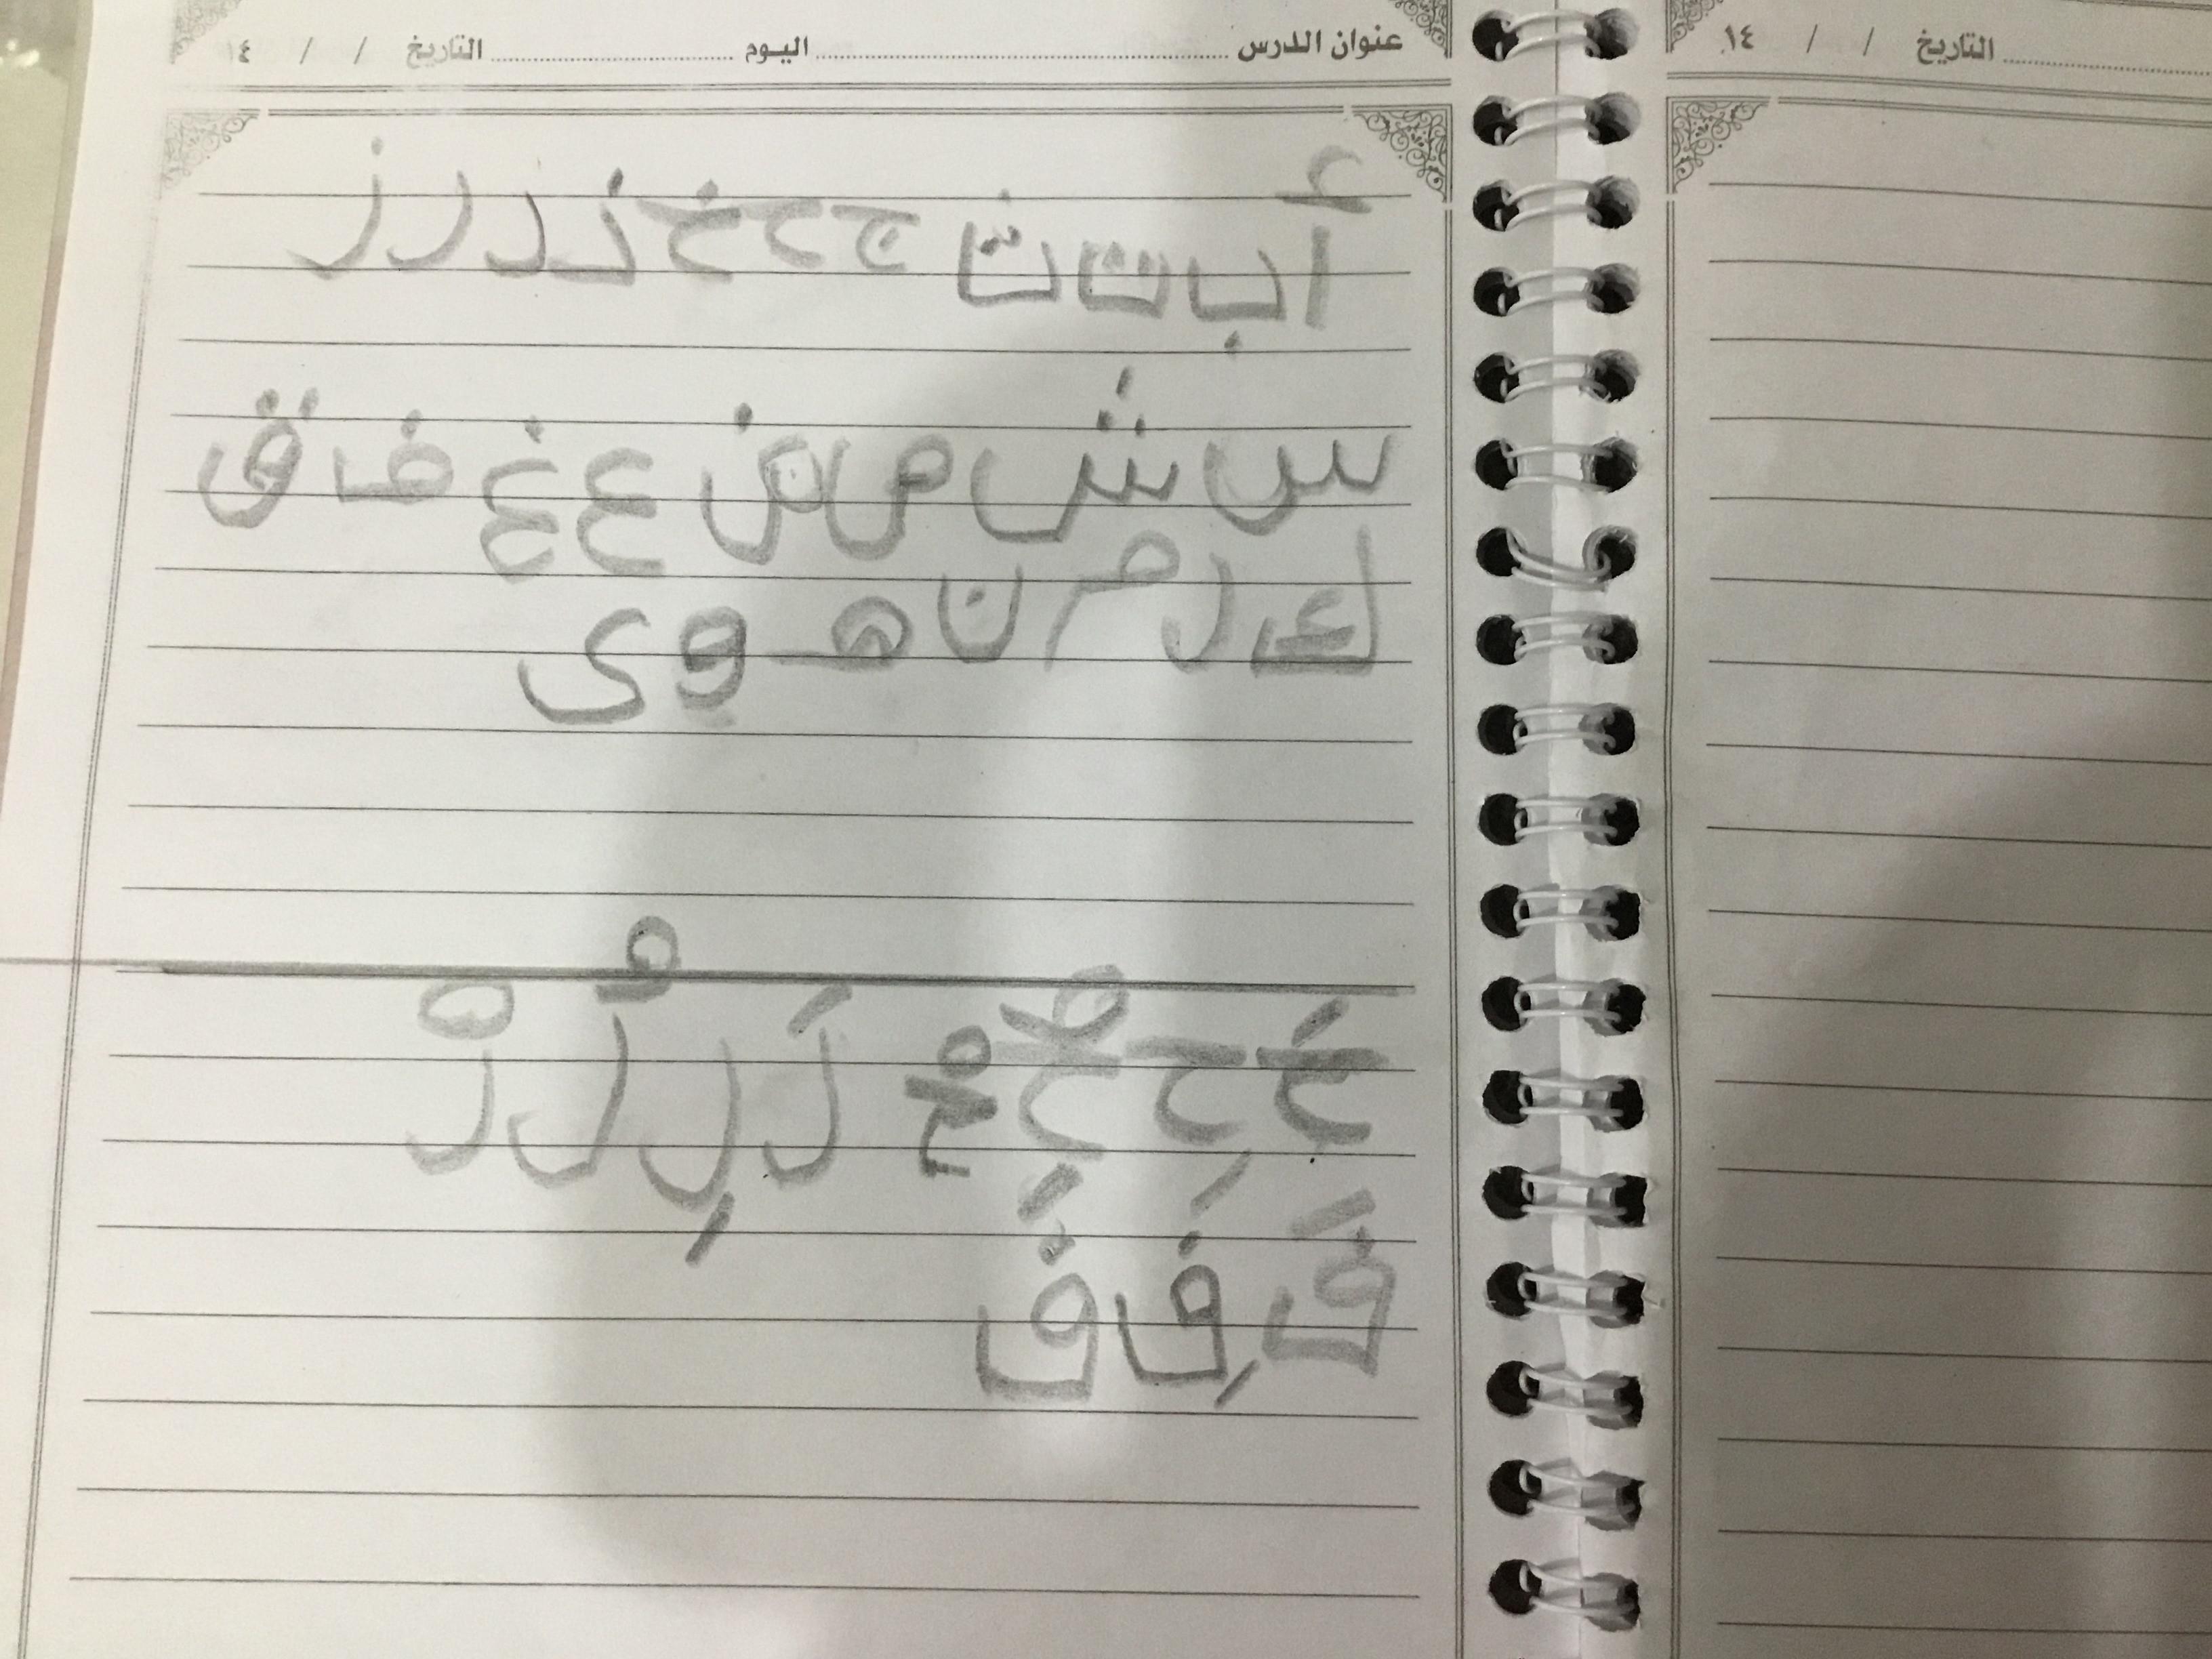 عنوان الدرس اليوم التاريخ / / ١٤
التاريخ / / ١٤
أ ب ت ث ج ح خ ذ د ر ز
س ش ص ض ع غ ف ق
ك ل م ن هـ و ى
خَ حِ خُ خْ لَ لِ لُ لْ
فَ فِ فَ